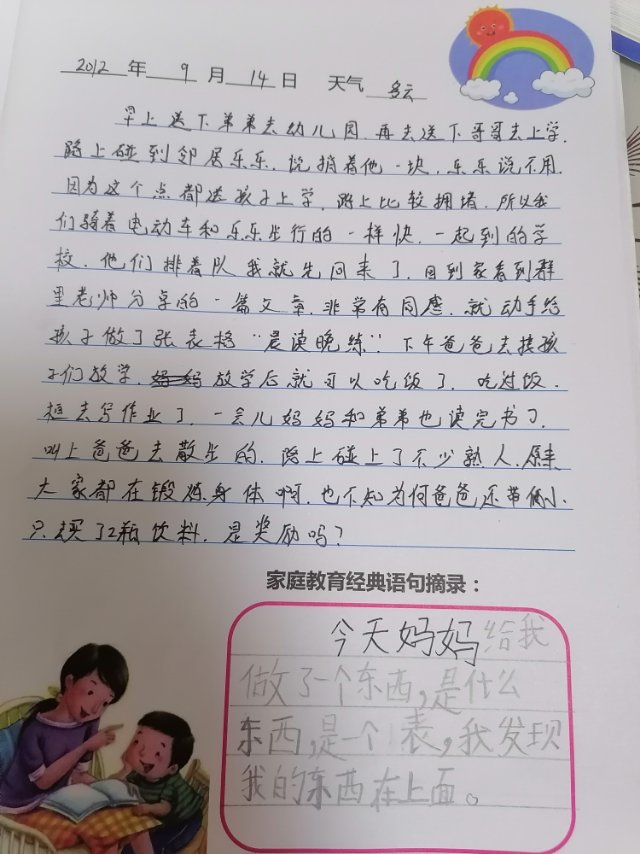 2012 年 9 月 14 日 天气 多云
早上送下弟弟去幼儿园,再去送下哥哥去上学,
路上碰到邻居乐乐,说捎着他一块,乐乐说不用,
因为这个点都送孩子上学,路上比较拥堵,所以我
们骑着电动车和乐乐步行的一样快,一起到的学
校,他们排着队我就先回来了,回到家看到群
里老师分享的一篇文章,非常有同感,就动手给
孩子做了张表格“晨读晚练”.下午爸爸去接孩
子们放学,妈妈放学后就可以吃饭了,吃过饭,
恒去写作业了,一会儿妈妈和弟弟也读完书了,
叫上爸爸去散步的,路上碰上了不少熟人,原来
大家都在锻炼身体啊,也不知为何爸爸还带俩小
只买了2瓶饮料,是奖励吗?
家庭教育经典语句摘录:
今天妈妈给我
做了一个东西,是什么
东西,是一个表,我发现
我的东西在上面。